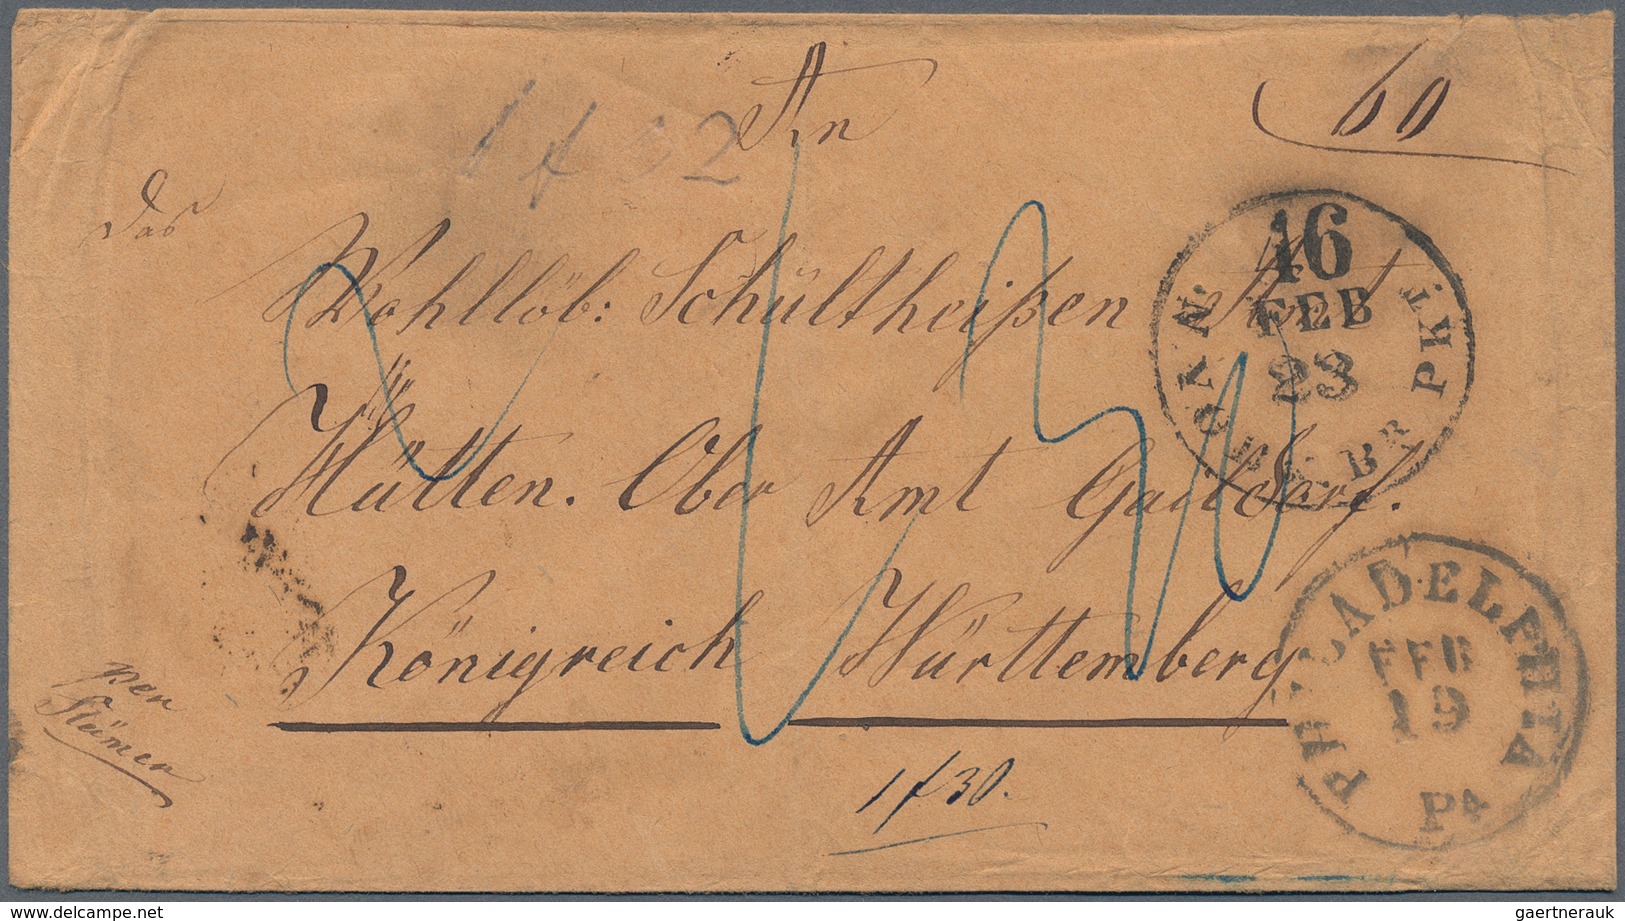 An
60
1 f 32
das
Wohllöb: Schültheißen Amt
Hütten. Ober Amt Gaildorf.
Königreich Württemberg
per
Stümer
1 f 30.
16
FEB
23
N. YORK BR. PKT.
PHILADELPHIA
FEB
19
Pa
gaertnerauk